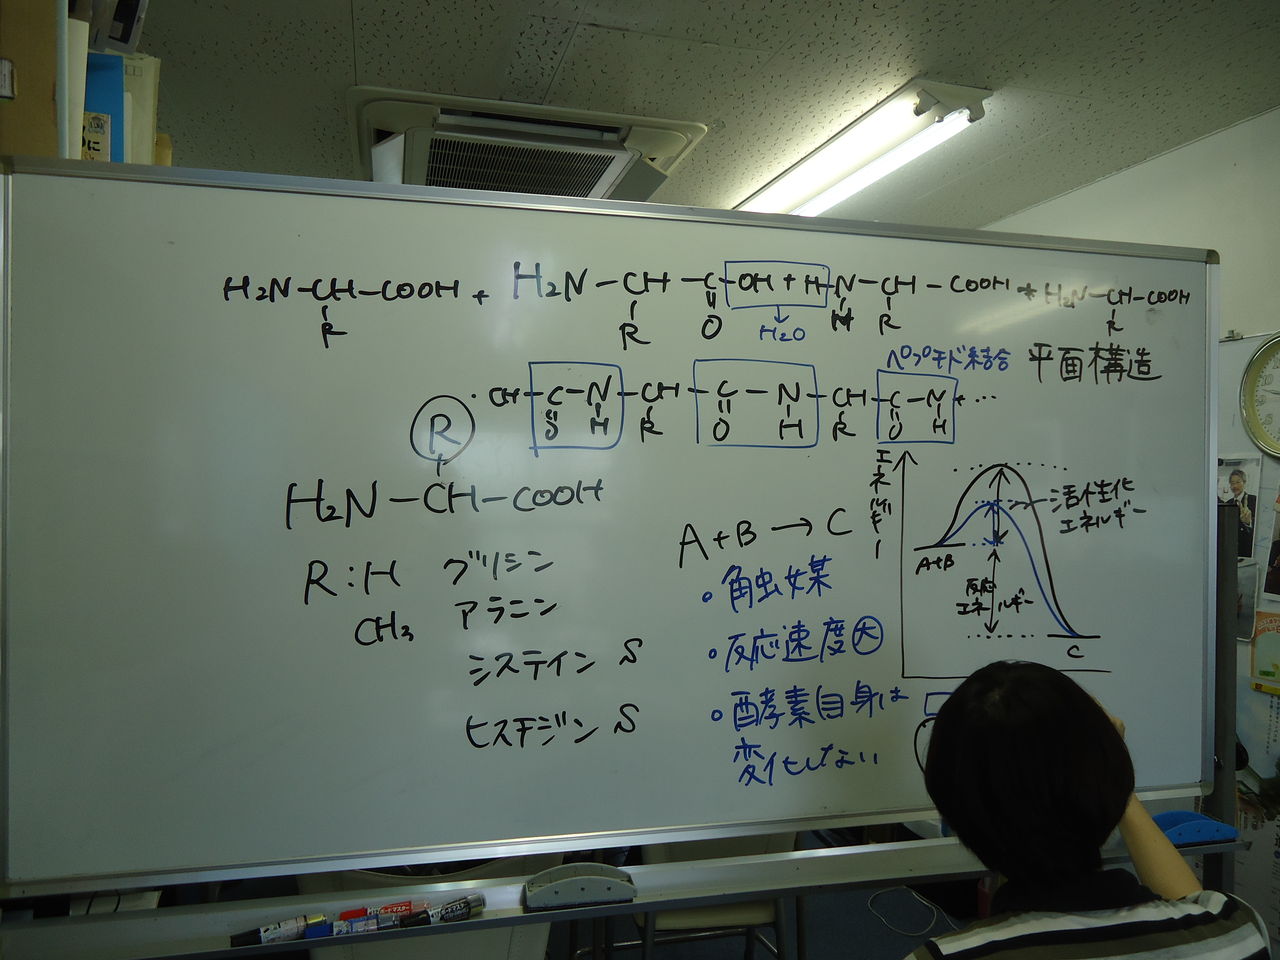 H₂N-CH-COOH + H₂N-CH-C-OH + H-N-CH-COOH + H₂N-CH-COOH
R R O H₂O H R R
ペプチド結合 平面構造
CH-C-N-CH-C-N-CH-C-N+...
O H R O H R O H
R
H₂N-CH-COOH
R:H グリシン
CH₃ アラニン
システイン S
ヒスチジン S
A+B→C
・触媒
・反応速度大
・酵素自身は
変化しない
エネルギー
活性化
エネルギー
A+B
反応
エネルギー
C